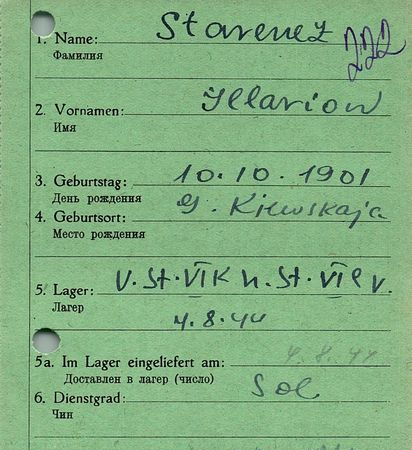 1. Name: Starenez
Фамилия
222
2. Vornamen: Illarion
Имя
3. Geburtstag: 10.10.1901
День рождения
4. Geburtsort: G. Kiewskaja
Место рождения
5. Lager: V. St. VI K n. St. VI v.
Лагер
4.8.44
5a. Im Lager eingeliefert am: 4.8.44
Доставлен в лагер (число)
6. Dienstgrad: Sol
Чин